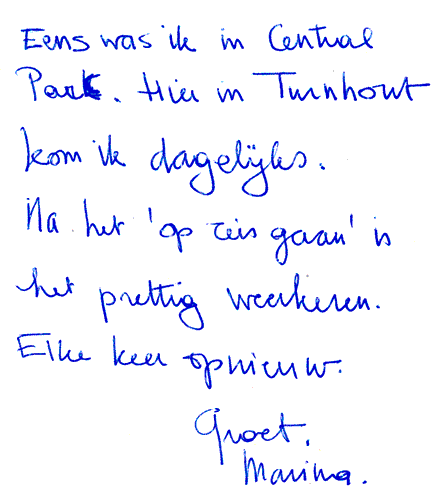 Eens was ik in Central
Park. Hier in Turnhout
kom ik dagelijks.
Na het 'op reis gaan' is
het prettig weerkeren.
Elke keer opnieuw.
Groet,
Marina.